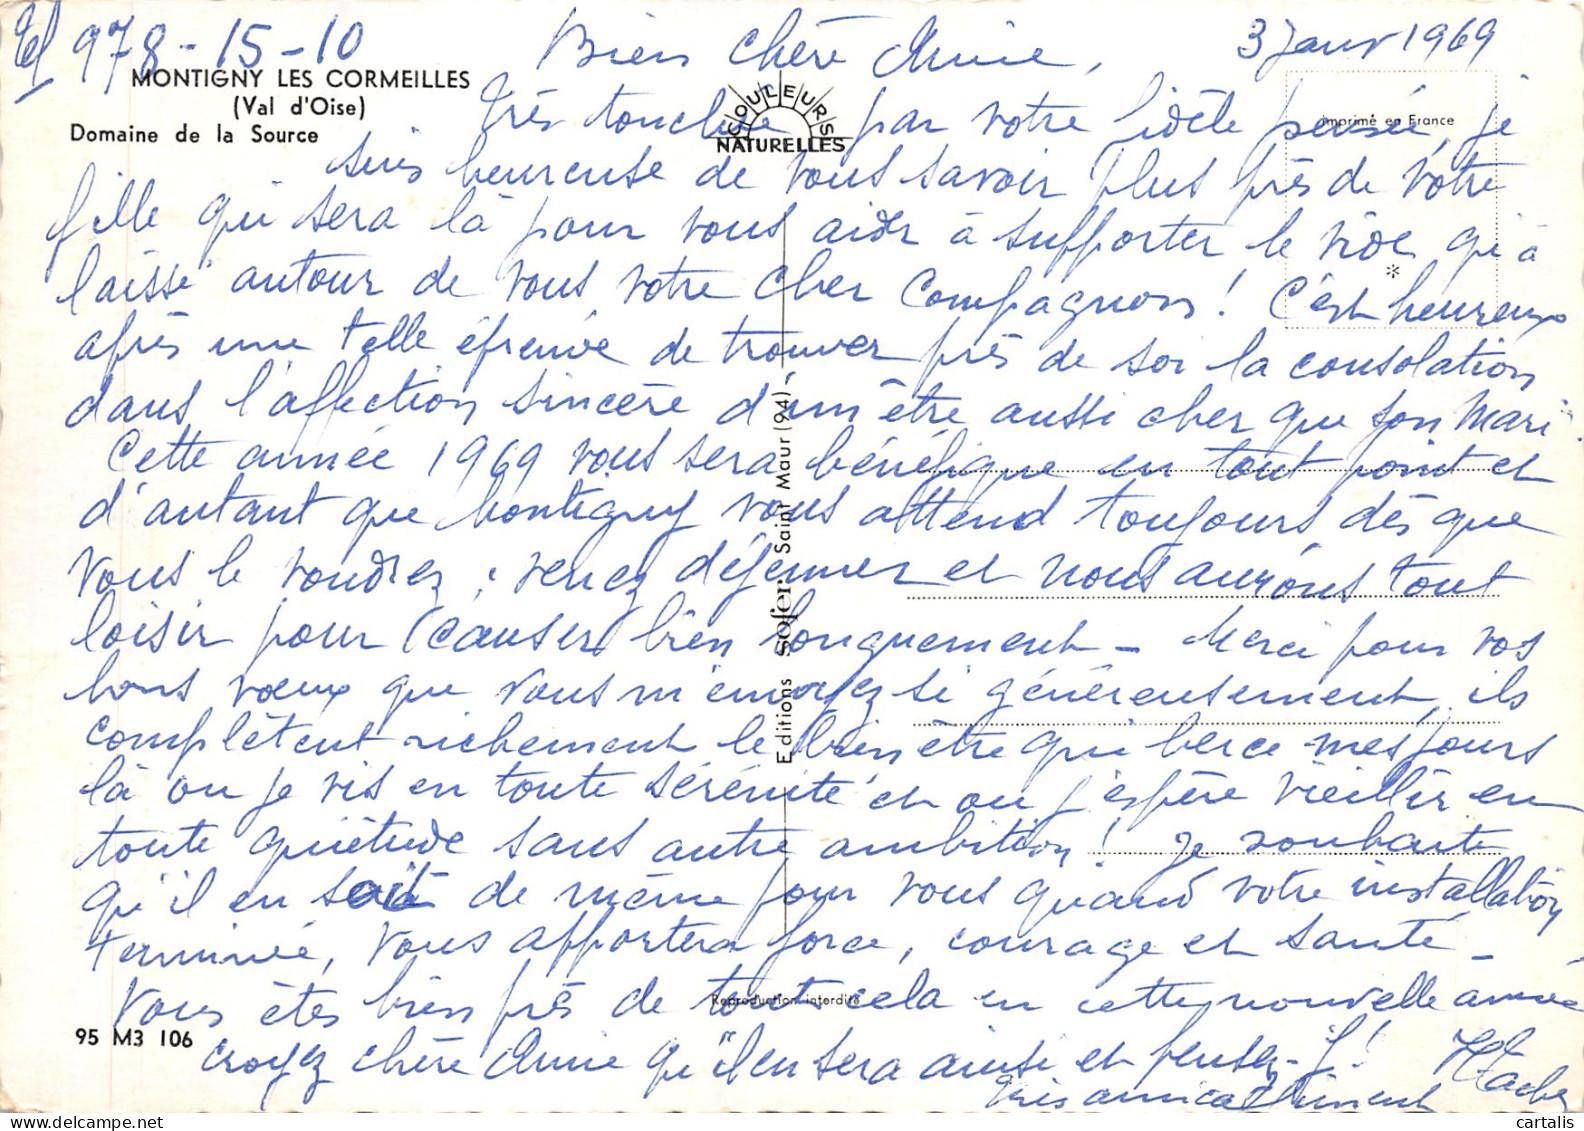 Tel 978-15-10
Bien chère Annie, 3 Janv 1969
MONTIGNY LES CORMEILLES
(Val d'Oise)
Domaine de la Source
COULEURS
NATURELLES
Imprimé en France
Très touchée par votre fidèle pensée, je
suis heureuse de vous savoir plus près de votre
fille qui sera là pour vous aider à supporter le vide qu'a
laissé autour de vous votre cher Compagnon ! C'est heureux
après une telle épreuve de trouver près de soi la consolation
dans l'affection sincère d'un être aussi cher que son Mari.
Cette année 1969 vous sera bénéfique en tout point et
d'autant que Montigny vous attend toujours, dès que
vous le voudrez, venez déjeuner et nous aurons tout
loisir pour (causer) bien longuement - Merci pour vos
bons vœux que vous m'envoyez si généreusement, ils
complètent richement le bien être qui berce mes jours
là où je vis en toute sérénité et où j'espère vieillir en
toute quiétude sans autre ambition ! Je souhaite
qu'il en soit de même pour vous quand votre installation
terminée, vous apportera force, courage et santé -
Vous êtes bien près de tout cela en cette nouvelle année
croyez chère Annie qu'il en sera ainsi et pensez-y !
Très amicalement
Editions sofer Saint Maur (94)
Reproduction interdite
95 M3 106
cartalis